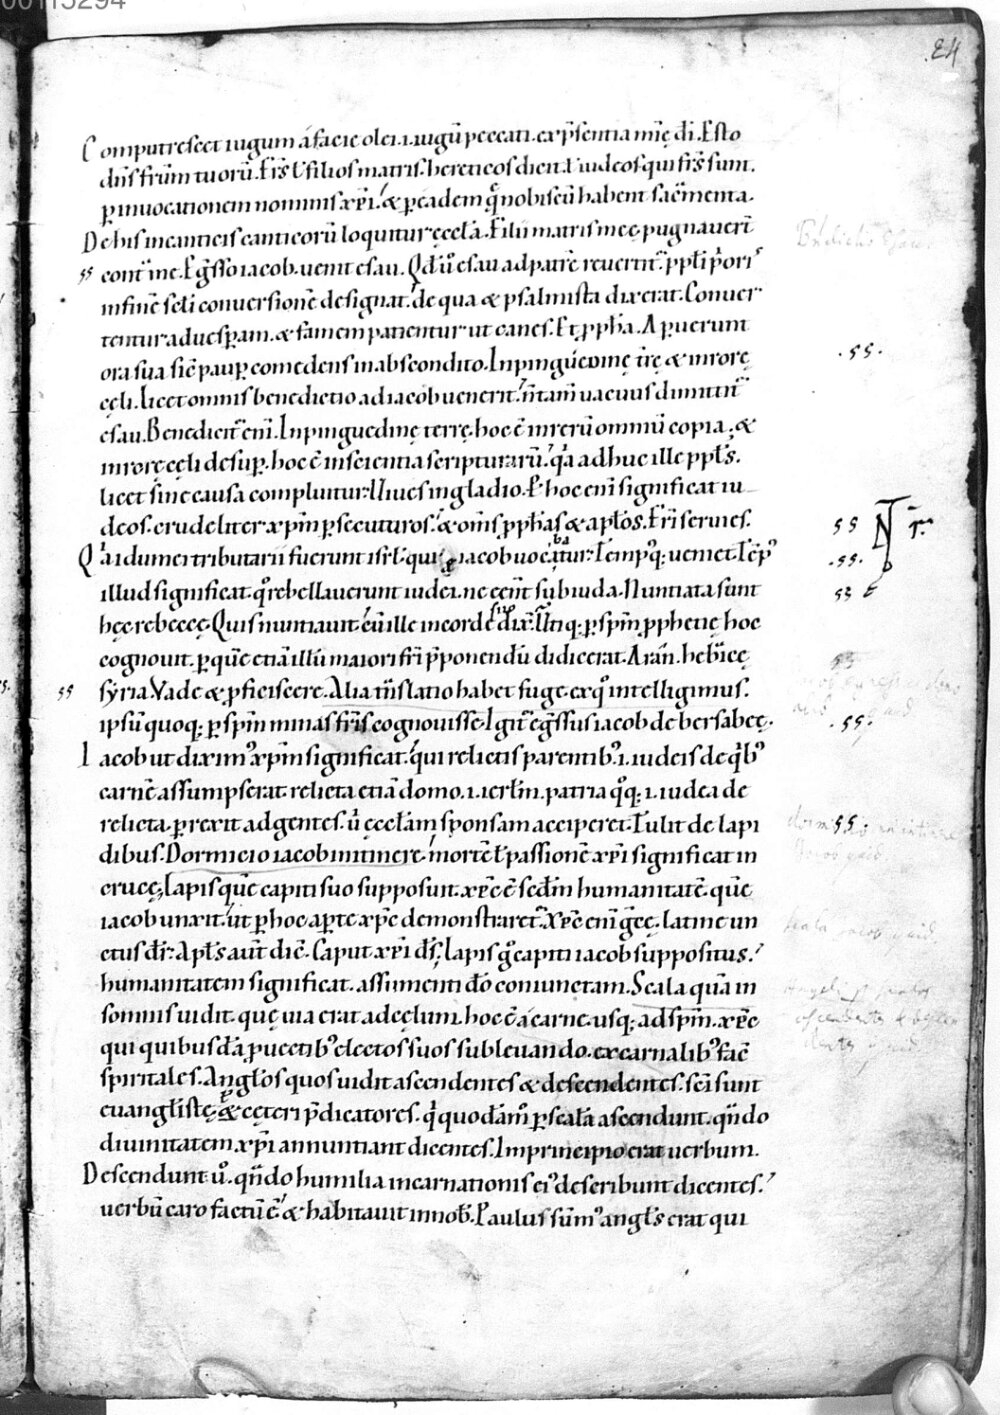 00113294
.24
Computrescet iugum a facie olei .i. iugū peccati. ex p̄sentia mīę dī. Esto
dn̄s frūm tuorū. Frs̄ ł filios matris. hereticos dicit. ł iudeos qui frs̄ sunt.
ꝑ inuocationem nominis xp̄i. & ꝑ eadem q̄ nobiscū habent sac̄menta.
De his in canticis canticorū loquitur ęccl̄a. Filii matris meę pugnauer̄t
55 cont̄ me. Eg̃sso iacob. uenit esau. Qd̄ ū esau ad patrē reuertit᷑. ppl̄i p̄oris
in finē scl̄i conuersionē designat. de qua & psalmista dixerat. Conuer
tentur ad uesꝑam. & famem patientur ut canes. Et ꝓph̄a. Aꝑuerunt
ora sua sic̄ pauꝑ comedens in abscondito. In pinguedinę t̄rę & in rorę
cęli. licet omnis benedictio ad iacob uenerit. n̄ tam̄ uacuus dimittit᷑
esau. Benedicit᷑ eni᷑. In pinguedinę terrę. hoc ē in rerū omniū copia. &
in rorę cęli desuꝑ. hoc ē in scientia scripturarū. q̇a adhuc ille ppl̄s.
licet sine causa compluitur. Uiues in gladio. Et hoc eni᷑ significat iu
deos. crudeliter xp̄m ꝑsecuturos. & om̄s ꝓph̄as & apl̄os. Fri᷑ seruies. 55
Qa idumei tributarii fuerunt isrl̄. qui iacob uocabatur. Temp⁹q; ueniet. Tēp⁹ .55.
illud significat. q̄ rebellauerunt iudei. ne eent sub iuda. Nuntiata sunt 53
hęc rebeccę. Quis nuntiauit. cū ille in corde suo dix̄. Utiq; ꝑ sp̄m ꝓphetię hoc
cognouit. ꝑ quē etiā illū maiori fri᷑ p̄ponendū didicerat. Aran. hebraice
55 syria. Vade & ꝓficiscere. Alia tn̄slatio habet fuge. ex q̄ intelligimus.
ipsū quoq; ꝑ sp̄m minas fris̄ cognouisse. Igit᷑ eg̃ssus iacob de bersabeę. .55.
Iacob ut diximꝰ xp̄m significat. qui relictis parentibꝰ .i. iudeis de q̇bꝰ
carnē assumpserat. relicta etiā domo .i. ierl̄m. patria q̊q; .i. iudea de
relicta. ꝑrexit ad gentes. u᷑ ęccl̄am sponsam acciperet. Tulit de lapi 55.
dibus. Dormicio iacob in itinere. mortē ł passionē xp̄i significat in
crucę. Lapis quē capiti suo supposuit. xp̄c ē sed̄m humanitatē. quē
iacob unxit. ut ꝑ hoc aꝑte xp̄c demonstraret᷑. Xp̄c eni᷑ g̃cę. latine un
ctus dr̄. Apl̄s aut̄ dic̄. Caput xp̄i d̄s. Lapis g̊ capiti iacob suppositus.
humanitatem significat. assumenti dō coniunctam. Scala quā in
somnis uidit. quę uia erat ad cęlum. hoc ē a carne. usq; ad sp̄m. xp̄c
qui quibusdā ꝓuectibꝰ electos suos subleuando. ex carnalibꝰ fac̄
spiritales. Angl̄os quos uidit ascendentes & descendentes. sci᷑ sunt
euangl̄istę & cęteri p̄dicatores. q̇ quodāmꝰ ꝑ scalā ascendunt. qn̄do
diuinitatem xp̄i annuntiant dicentes. In principio erat uerbum.
Descendunt ū. qn̄do humilia incarnationis eiꝰ describunt dicentes.
uerbū caro factū ē & habitauit in nob̄. Paulus sūmꝰ angl̄s erat qui